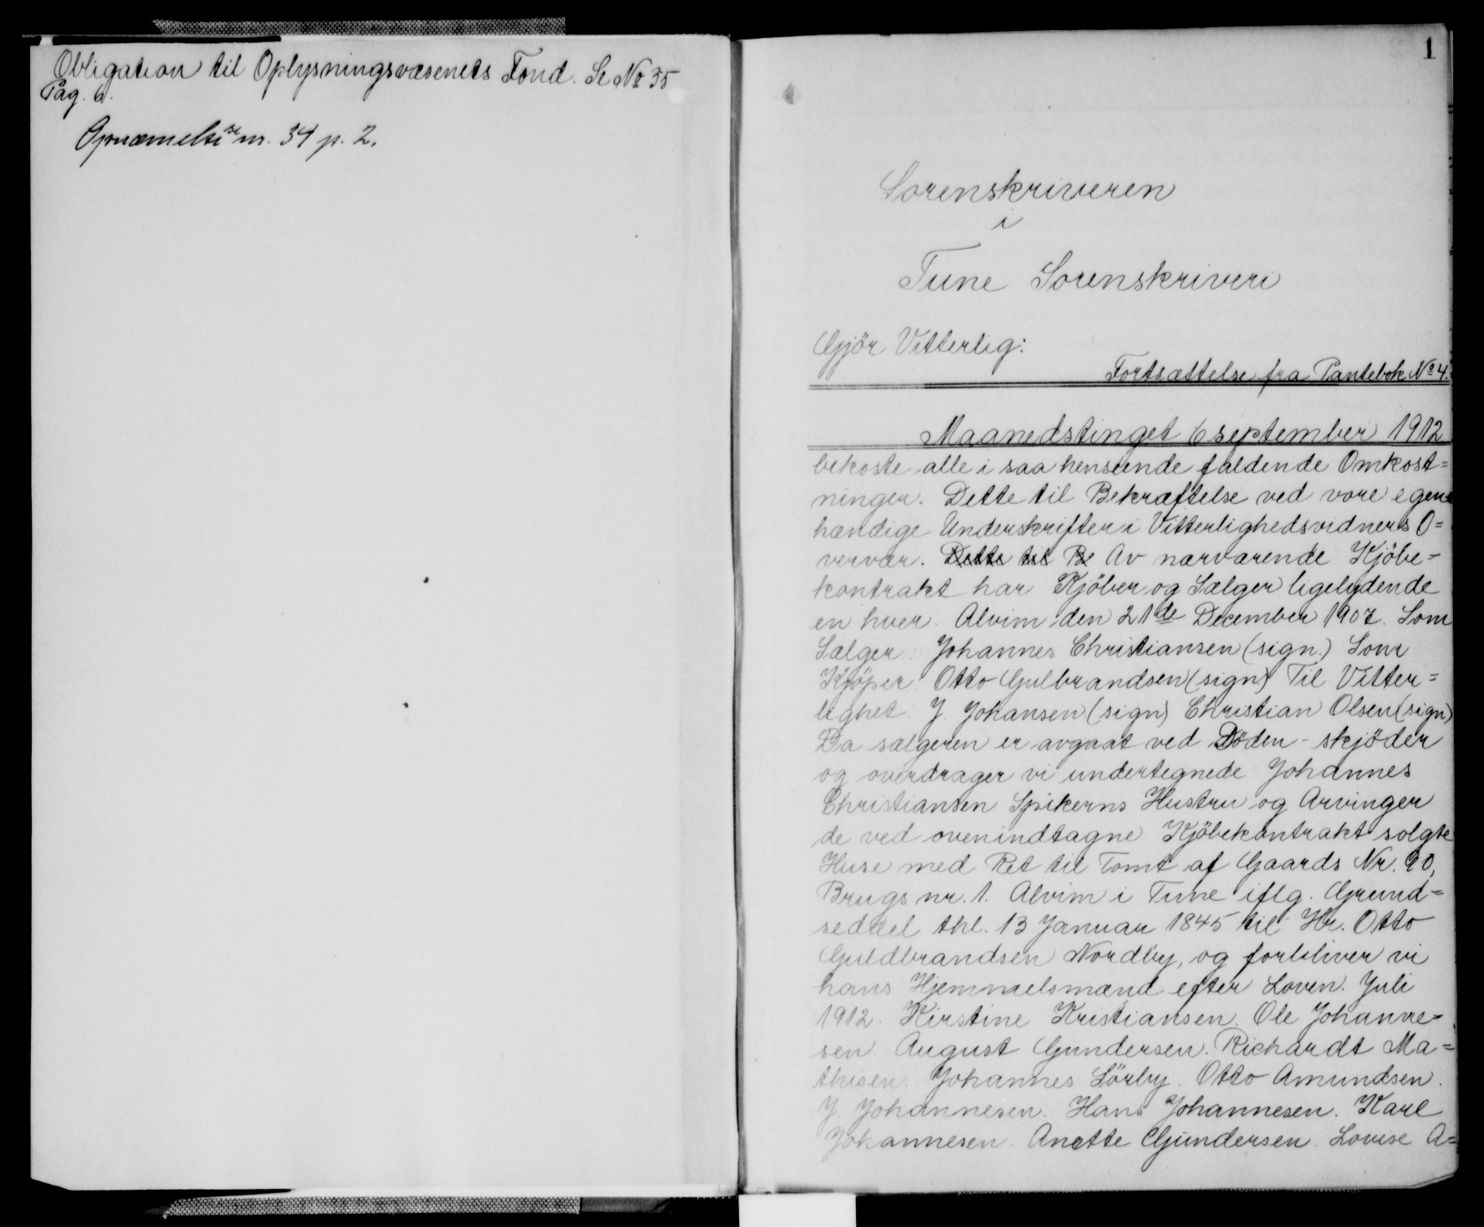 Obligation til Oplysningsvæsenets Fond. Se No 35
Pag. 6.
Opnævnelse nr. 34 p. 2.
1
Sorenskriveren
i
Tune Sorenskriveri
Gjör Vitterlig:
Fortsættelse fra Pantebok No 4.
Maanedstinget 6 september 1912
bekoste alle i saa henseende faldende Omkost=
ninger. Dette til Bekræftelse ved vore egen
hændige Underskrifter i Vitterlighedsvidners O=
vervær. Dette til Be Av nærværende Kjöbe-
kontrakt har Kjöber og Sælger ligelydende
en hver. Alvim den 21de December 1907. Som
Sælger: Johannes Christiansen (sign.) Som
Kjöper: Otto Gulbrandsen (sign) Til Vitter=
lighet: J. Johansen (sign) Christian Olsen (sign)
Da sælgeren er avgaat ved Döden - skjöder
og overdrager vi undertegnede Johannes
Christiansen Spikerns Hustru og Arvinger
de ved ovenindtagne Kjöbekontrakt solgte
Huse med Ret til Tomt af Gaards Nr. 90,
Brugs nr. 1. Alvim i Tune iflg. Grund=
seddel thl. 13 Januar 1845 til Hr. Otto
Guldbrandsen Nordby, og forbliver vi
hans Hjemmelsmænd efter Loven. Juli
1912. Kirstine Kristiansen. Ole Johanne=
sen. August Gundersen. Richardt Ma=
thisen. Johannes Lörby. Otto Amundsen.
J. Johannesen. Hans Johannesen. Karl
Johannesen. Anette Gjundersen. Lovise A=